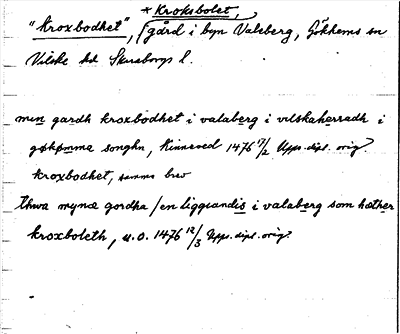 * Kroksbolet,
"Kroxbodhet", gård i byn Valeberg, Gökhems sn
Vilske hd Skaraborgs l.
min gardh kroxbodhet i valabærg i vilskahærradh i
gøkømma songhn, Kinneved 1476 17/2 Upps. dipl. orig.
kroxbodhet, samma brev
thwa mynæ gordha / en liggiandis i valabærg som hæther
kroxboleth, u.o. 1476 12/3 Upps. dipl. orig.